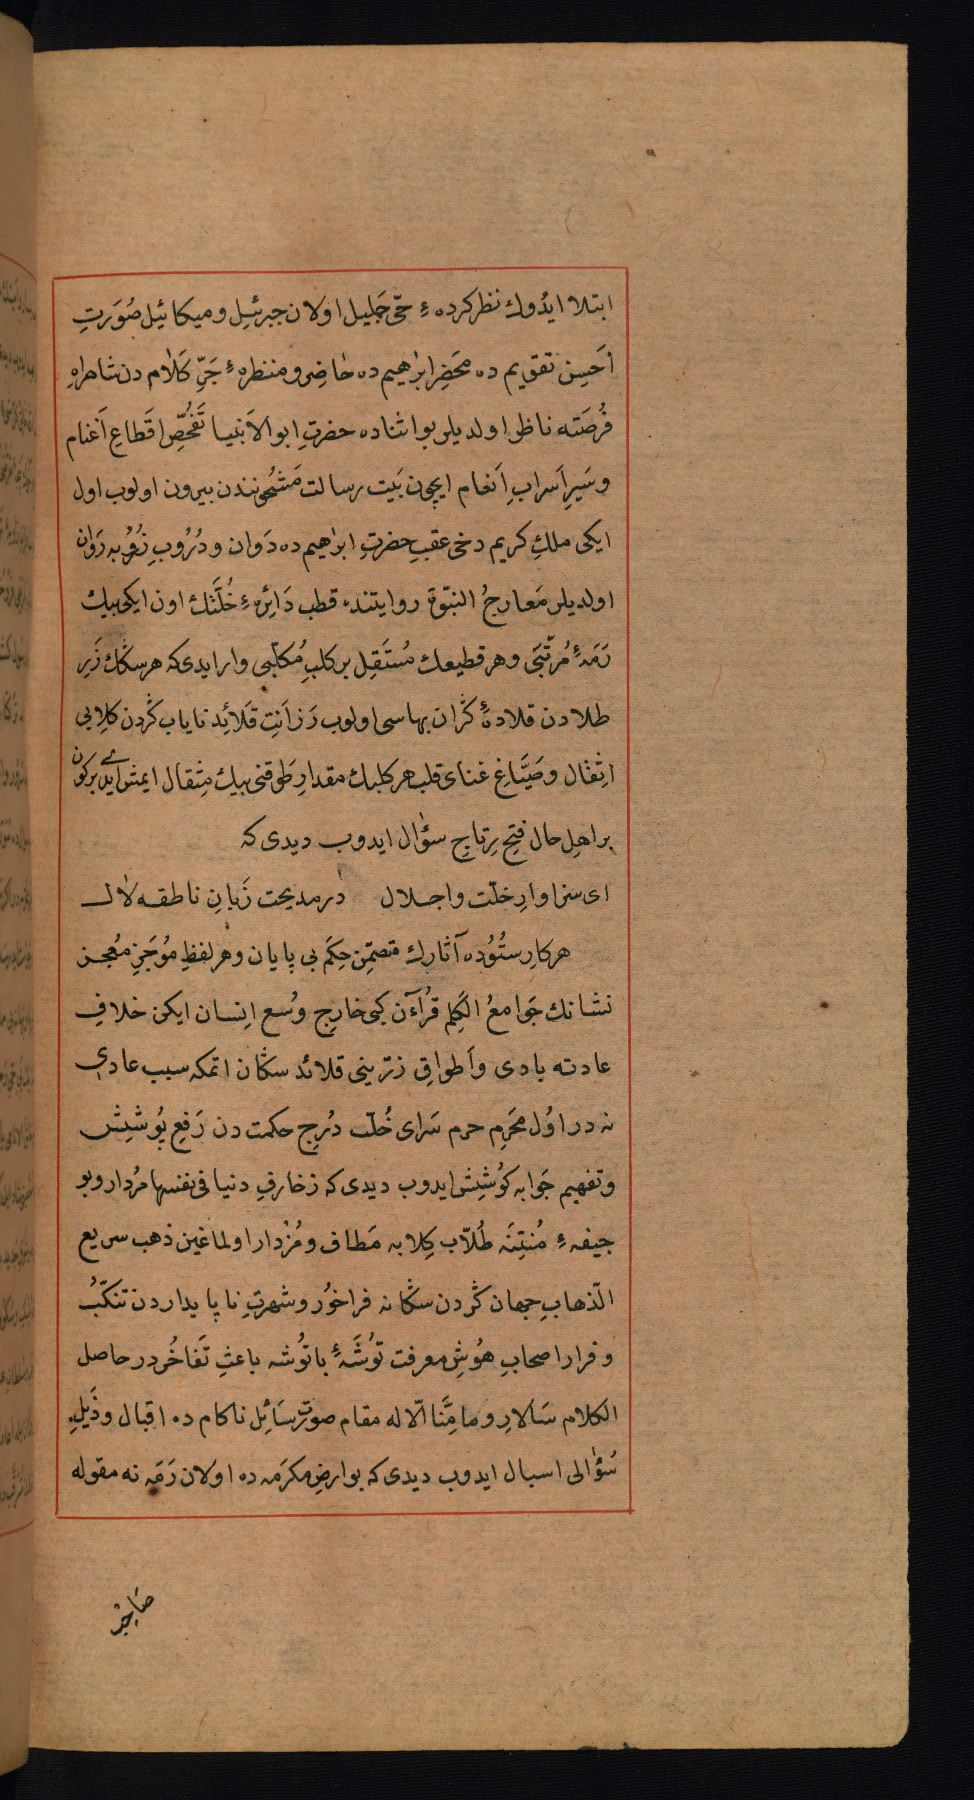 ابتلا ایدوك نظر كرده ءِ حّی جَلیل اولان جبرئیل و میكائیل صُوَرتِ
اَحسِن تقویم ده مَحَضِر ابرٰهیم ده حٰاضِر و منتظره ءِ جَرِّ كَلاٰم دن شاهراهِ
فُرصَته ناظر اولدیلر بو اثناده حضرتِ ابو الاَنبیا تَفَحُّصِ اقَطاعِ اَغنام
و سَیرِ اَسرابِ اَنعام ایچون بَیت رسالت مَشحُونندن بیرون اولوب اول
ایكی ملكِ كریم دخی عقبِ حضرتِ ابرٰهیم ده دَوان و دُرُوبِ نُزُبه رَوان
اولدیلر مَعارجُ النبوّة روایتنده قطب دَائِرهٔ ءِ خُلَّتك اون ایكی بیك
رَمَهٔ مُرَتَّبی و هر قطیعك مُستَقِل بر كلبِ مُكلّبی وار ایدی كه هر سكك زَرِ
طلادن قلادهٔ كران بهاسی اولوب رَزاَنتِ قَلاَئِد نایاب كردن كلابی
اثِقال و صَیَّاغِ غنای قلب هر كلبك مقدارِ طَوقنی بیك مِثقال ایمش ایدی بركون
براهلِ حال فتحِ رِتاجِ سؤال ایدوب دیدی كه
ای سزاوارِ خلّت و اجلال در مدیحت زَبانِ ناطقه لاٰل
هر كارِ ستُوُده آثارك متضمِّن حِكَم بی پایان و هر لفظِ مُوجَزِ مُعجز
نشانك جَوامعُ الكَلِم قراٰءن كبی خارجِ وُسع اِنسان ایكن خلافِ
عادته بادی و اَطواقِ زرّینی قلائد سكان اتمكه سبب عادی
نه در اوّل مَحَرمِ حرم سَرای خُلّت دُرجِ حكمت دن رَفعِ پُوشِش
و تفهیم جَوابه كوُشِش ایدوب دیدی كه زخارفِ دنیا فی نفسها مُردار و بو
جیفه ءِ مُنتِنَه طُلّاب كِلابه مَطاف و مُزدار اولماغین ذهب سریع
الّذهابِ جهان كردن سكانه فراخوُر و شهرتِ ناپایداردن تنكّبُ
و فرار اصحابِ هوُشِ معرفت توُشَهٔ باتوُشه باعثِ تَفاخُر در حاصل
الكلام سَالارِ و ما مِنَّا الاّ له مقام صوتِ سَائِل ناكام ده اقبال و ذَیلِ
سُؤالی اسبال ایدوب دیدی كه بو ارضِ مكرمَه ده اولان رَمَه نه مقوله
صَاحِب